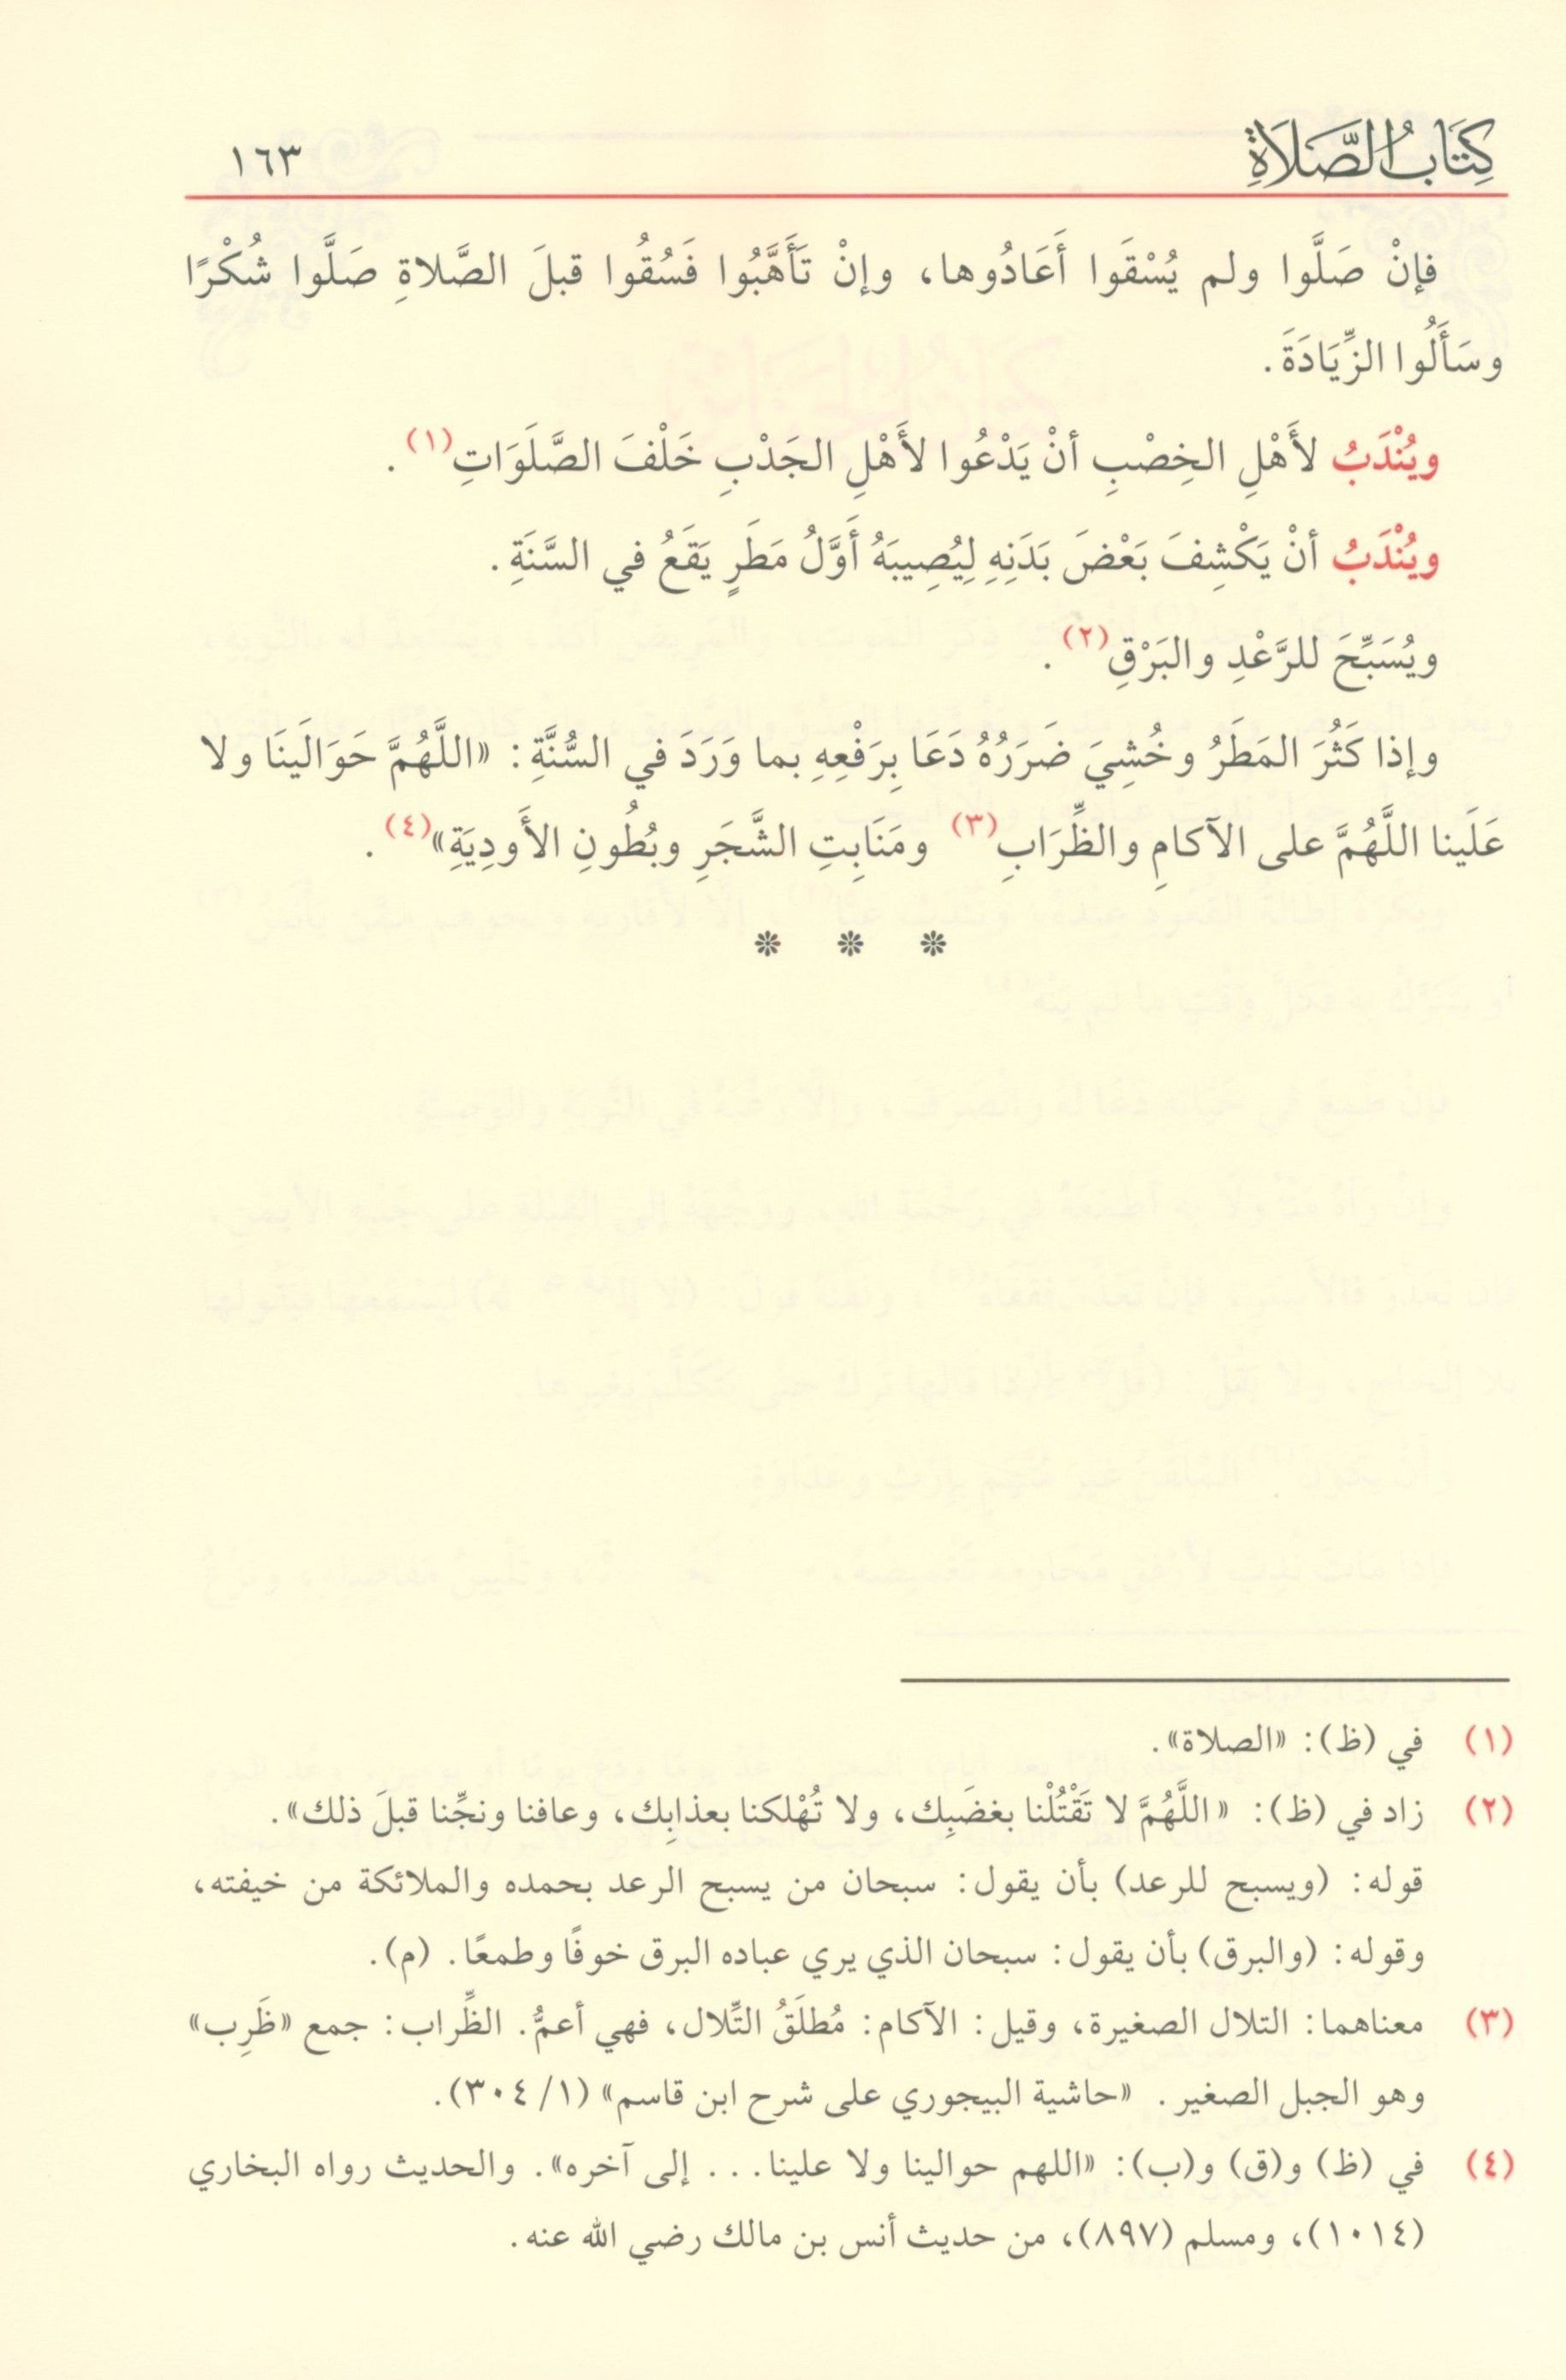 كِتَابُ الصَّلَاةِ ١٦٣
فإنْ صَلَّوا ولم يُسْقَوا أَعَادُوها، وإنْ تَأَهَّبُوا فَسُقُوا قبلَ الصَّلاةِ صَلَّوا شُكْرًا
وسَأَلُوا الزِّيَادَةَ.
ويُنْدَبُ لأَهْلِ الخِصْبِ أنْ يَدْعُوا لأَهْلِ الجَدْبِ خَلْفَ الصَّلَوَاتِ(١).
ويُنْدَبُ أنْ يَكْشِفَ بَعْضَ بَدَنِهِ لِيُصِيبَهُ أَوَّلُ مَطَرٍ يَقَعُ في السَّنَةِ.
ويُسَبِّحَ للرَّعْدِ والبَرْقِ(٢).
وإذا كَثُرَ المَطَرُ وخُشِيَ ضَرَرُهُ دَعَا بِرَفْعِهِ بما وَرَدَ في السُّنَّةِ: «اللَّهُمَّ حَوَالَينَا ولا
عَلَينا اللَّهُمَّ على الآكامِ والظِّرَابِ(٣) ومَنَابِتِ الشَّجَرِ وبُطُونِ الأَودِيَةِ»(٤).
* * *
(١) في (ظ): «الصلاة».
(٢) زاد في (ظ): «اللَّهُمَّ لا تَقْتُلْنا بغضَبِك، ولا تُهْلكنا بعذابِك، وعافنا ونجِّنا قبلَ ذلك».
قوله: (ويسبح للرعد) بأن يقول: سبحان من يسبح الرعد بحمده والملائكة من خيفته،
وقوله: (والبرق) بأن يقول: سبحان الذي يري عباده البرق خوفًا وطمعًا. (م).
(٣) معناهما: التلال الصغيرة، وقيل: الآكام: مُطلَقُ التِّلال، فهي أعمُّ. الظِّراب: جمع «ظَرِب»
وهو الجبل الصغير. «حاشية البيجوري على شرح ابن قاسم» (١/ ٣٠٤).
(٤) في (ظ) و(ق) و(ب): «اللهم حوالينا ولا علينا... إلى آخره». والحديث رواه البخاري
(١٠١٤)، ومسلم (٨٩٧)، من حديث أنس بن مالك رضي الله عنه.